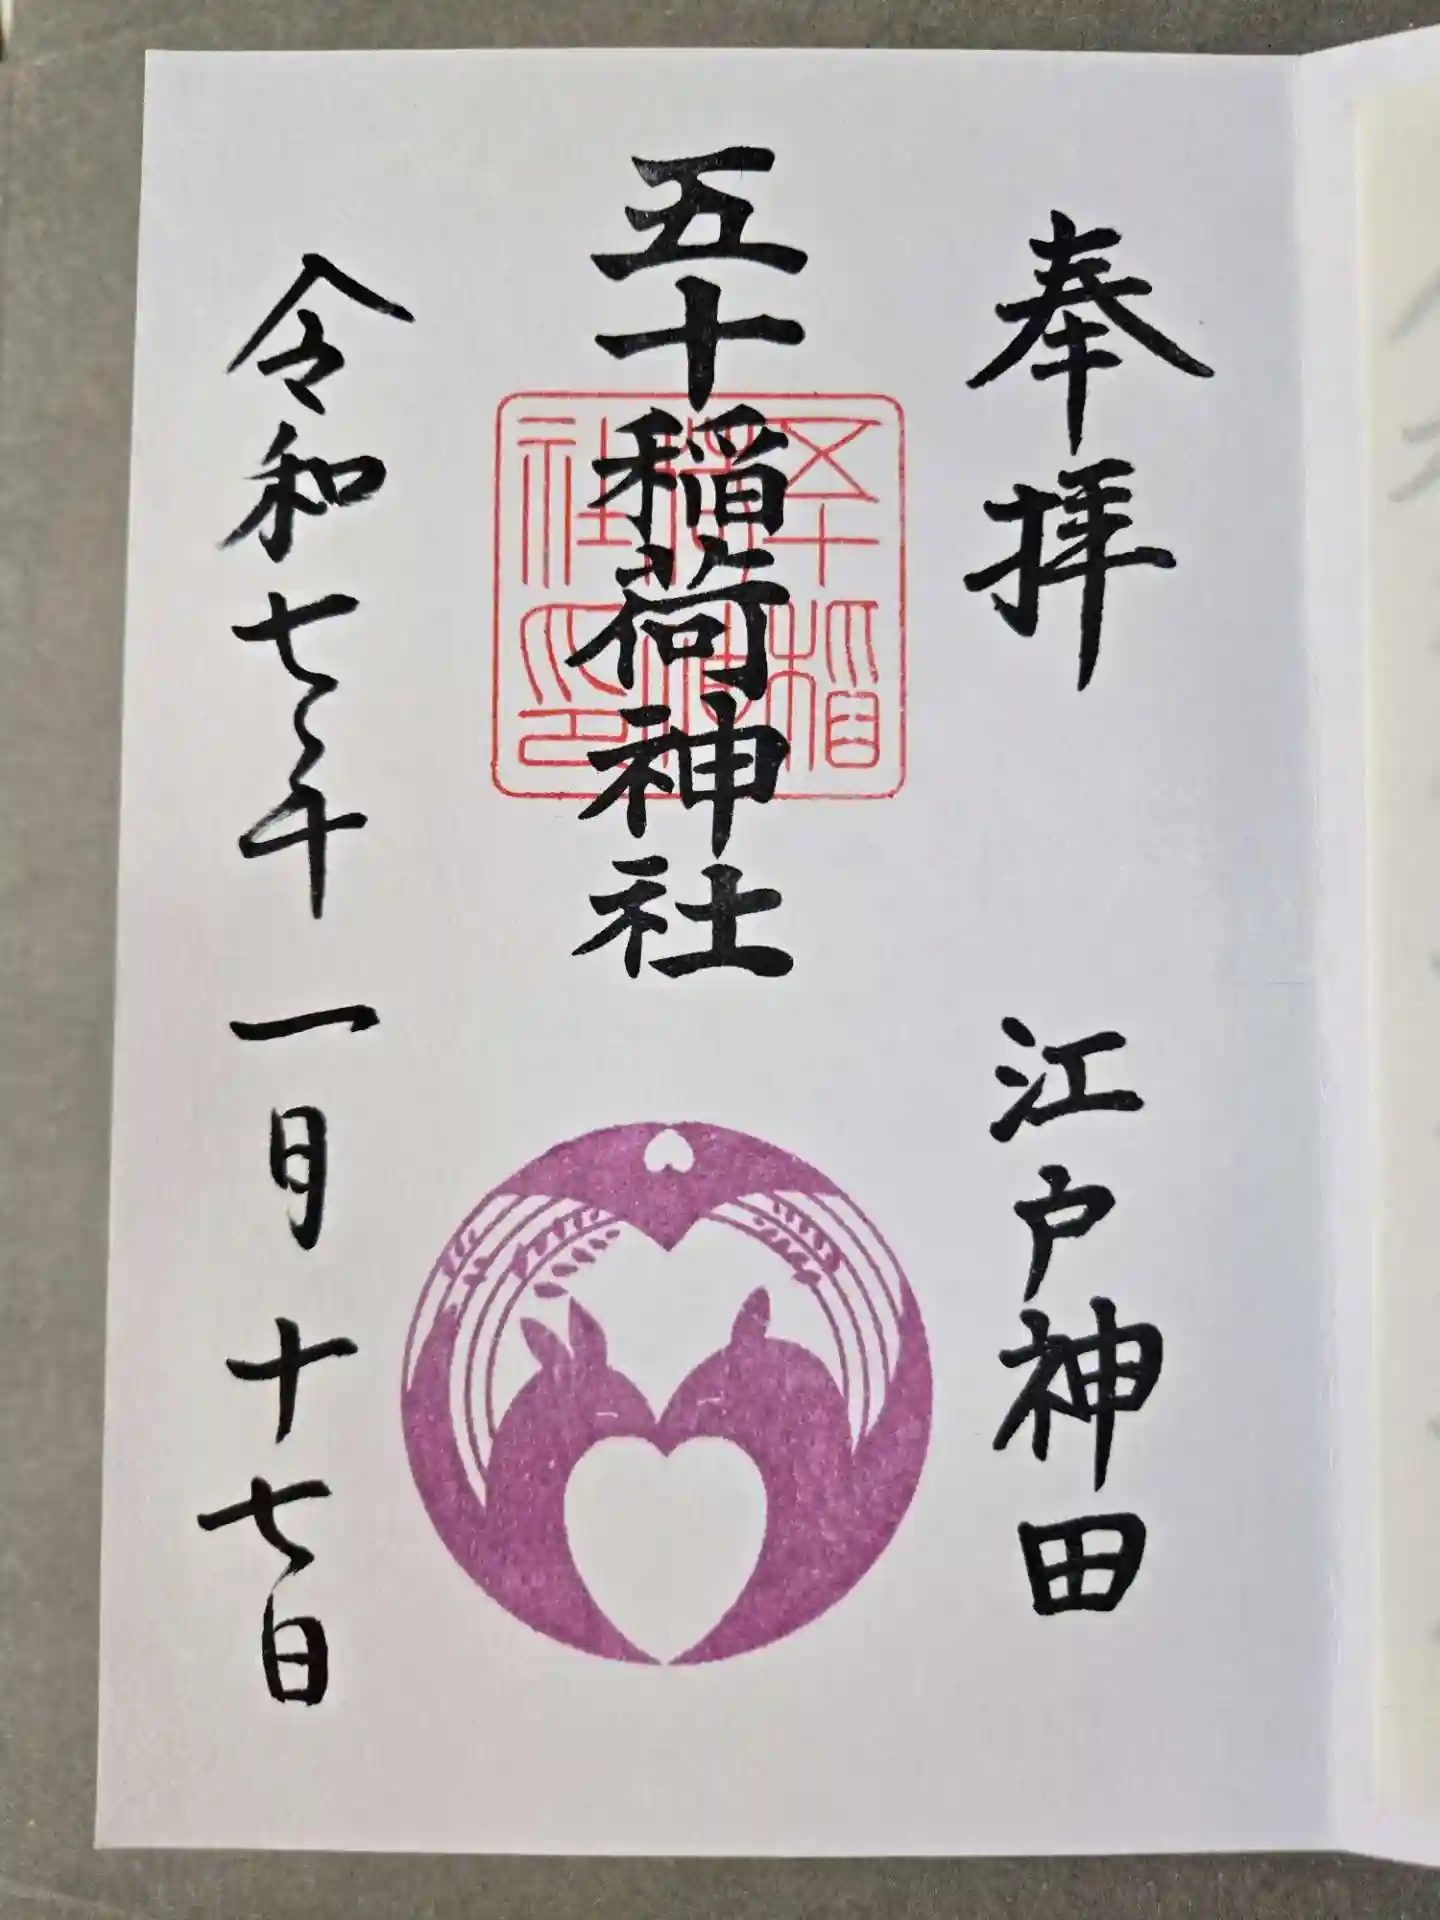 奉拝　江戸神田
五十稲荷神社
令和七年一月十七日
五十稲
荷神
社印